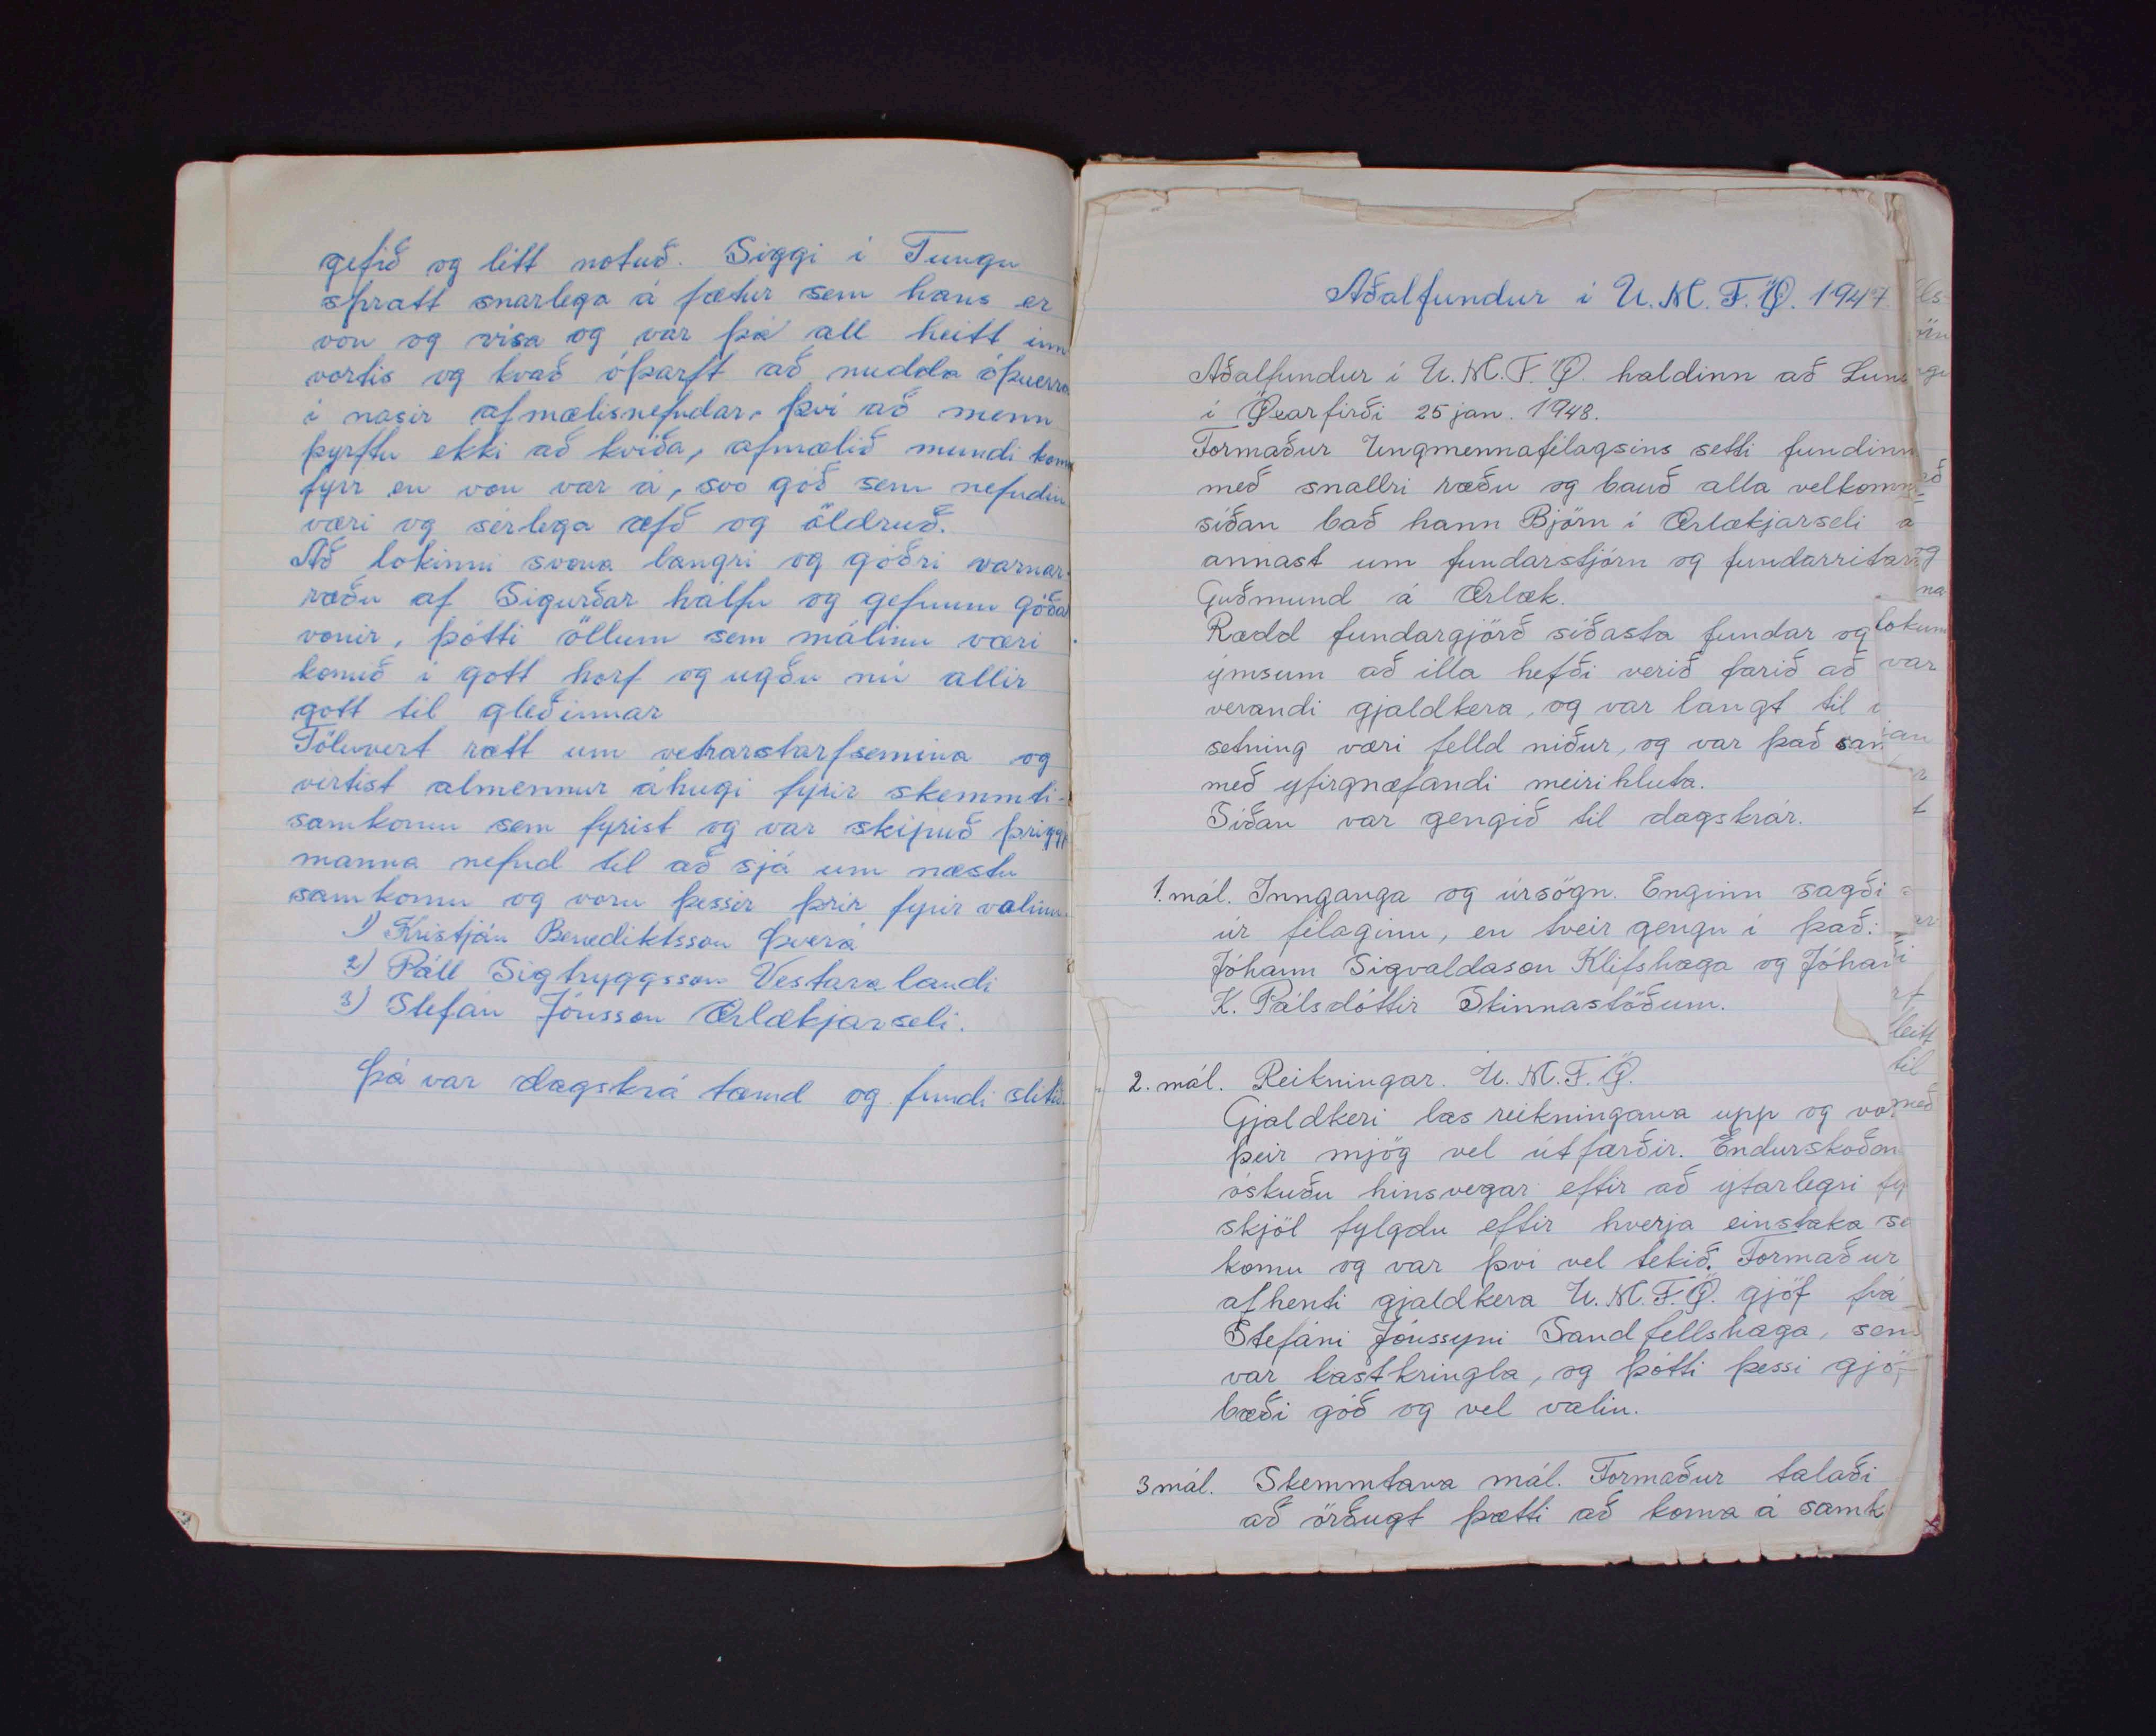 gefið og lítt notuð. Siggi í Tungu
spratt snarlega á fætur sem hans er
von og vísa og var þá all heitt inn
vortis og kvað óþarft að nudda óþverra
í nasir afmælisnefndar, því að menn
þyrftu ekki að kvíða, afmælið mundi koma
fyrr en von var á, svo góð sem nefndin
væri og sérlega æfð og öldruð.
Að lokinni svona langri og góðri varnar-
ræðu af Sigurðar hálfu og gefnum góðar
vonir, þótti öllum sem málinu væri
komið í gott horf og ugðu nú allir
gott til gleðinnar
Töluvert rætt um vetrarstarfsemina og
virtist almennur áhugi fyrir skemmti-
samkomu sem fyrist og var skipuð þriggja
manna nefnd til að sjá um næstu
samkomu og voru þessir þrír fyrir valinu
1) Kristján Benediktsson Þverá
2) Páll Sigtryggsson Vestaralandi
3) Stefán Jónsson Ærlækjarseli.
Þá var dagskrá tæmd og fundi slitið
Aðalfundur í U.M.F.Ö. 1947
Aðalfundur í U.M.F.Ö. haldinn að Lun
í Öxarfirði 25 jan. 1948.
Formaður Ungmennafélagsins setti fundinn
með snallri ræðu og bauð alla velkomn
síðan bað hann Björn í Ærlækjarseli a
annast um fundarstjórn og fundarritar
Guðmund á Ærlæk.
Rædd fundargjörð síðasta fundar og
ýmsum að illa hefði verið farið að
verandi gjaldkera, og var langt til
setning væri felld niður, og var það sam
með yfirgnæfandi meirihluta.
Síðan var gengið til dagskrár.
1. mál. Innganga og úrsögn. Enginn sagði
úr félaginu, en tveir gengu í það:
Jóhann Sigvaldason Klifshaga og Jóhan
K. Pálsdóttir Skinnastöðum.
2. mál. Reikningar. U.M.F.Ö.
Gjaldkeri las reikningana upp og vo
þeir mjög vel útfærðir. Endurskoðon
óskuðu hinsvegar eftir að ýtarlegri fy
skjöl fylgdu eftir hverja einstaka sa
komu og var því vel tekið. Formaður
afhenti gjaldkera U.M.F.Ö. gjöf frá
Stefáni Jónssyni Sandfellshaga, sem
var kastkringla, og þótti þessi gjöf
bæði góð og vel valin.
3 mál. Skemmtana mál. Formaður talaði
að örðugt þætti að koma á samk